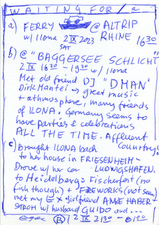 WAITING FOR /a
a) FERRY @ ALTRIP
w/ Ilona 2 IX 2023 RHINE 16:30
SAT
b) @ "BAGGERSEE SCHLICHT"
2 IX 16:30 - 19:30 w/ Ilona
Met old friend DJ "DMAN"
Dirk Mantei) great music
+ athmosphere, many friends
of ILONA. Germany seems to
have parties & celebrations
ALL THE TIME - Affluent
Country!
c) Brought ILONA back
to her house in FRIESENHEIM -
Drove w/ her car LUDWIGSHAFEN,
to Heidelberg's Fischerfest (no
fish though) + FIREWORKS (not seen)
met my EX girlfriend ANKE HABER-
w/ husband GUIDO and...